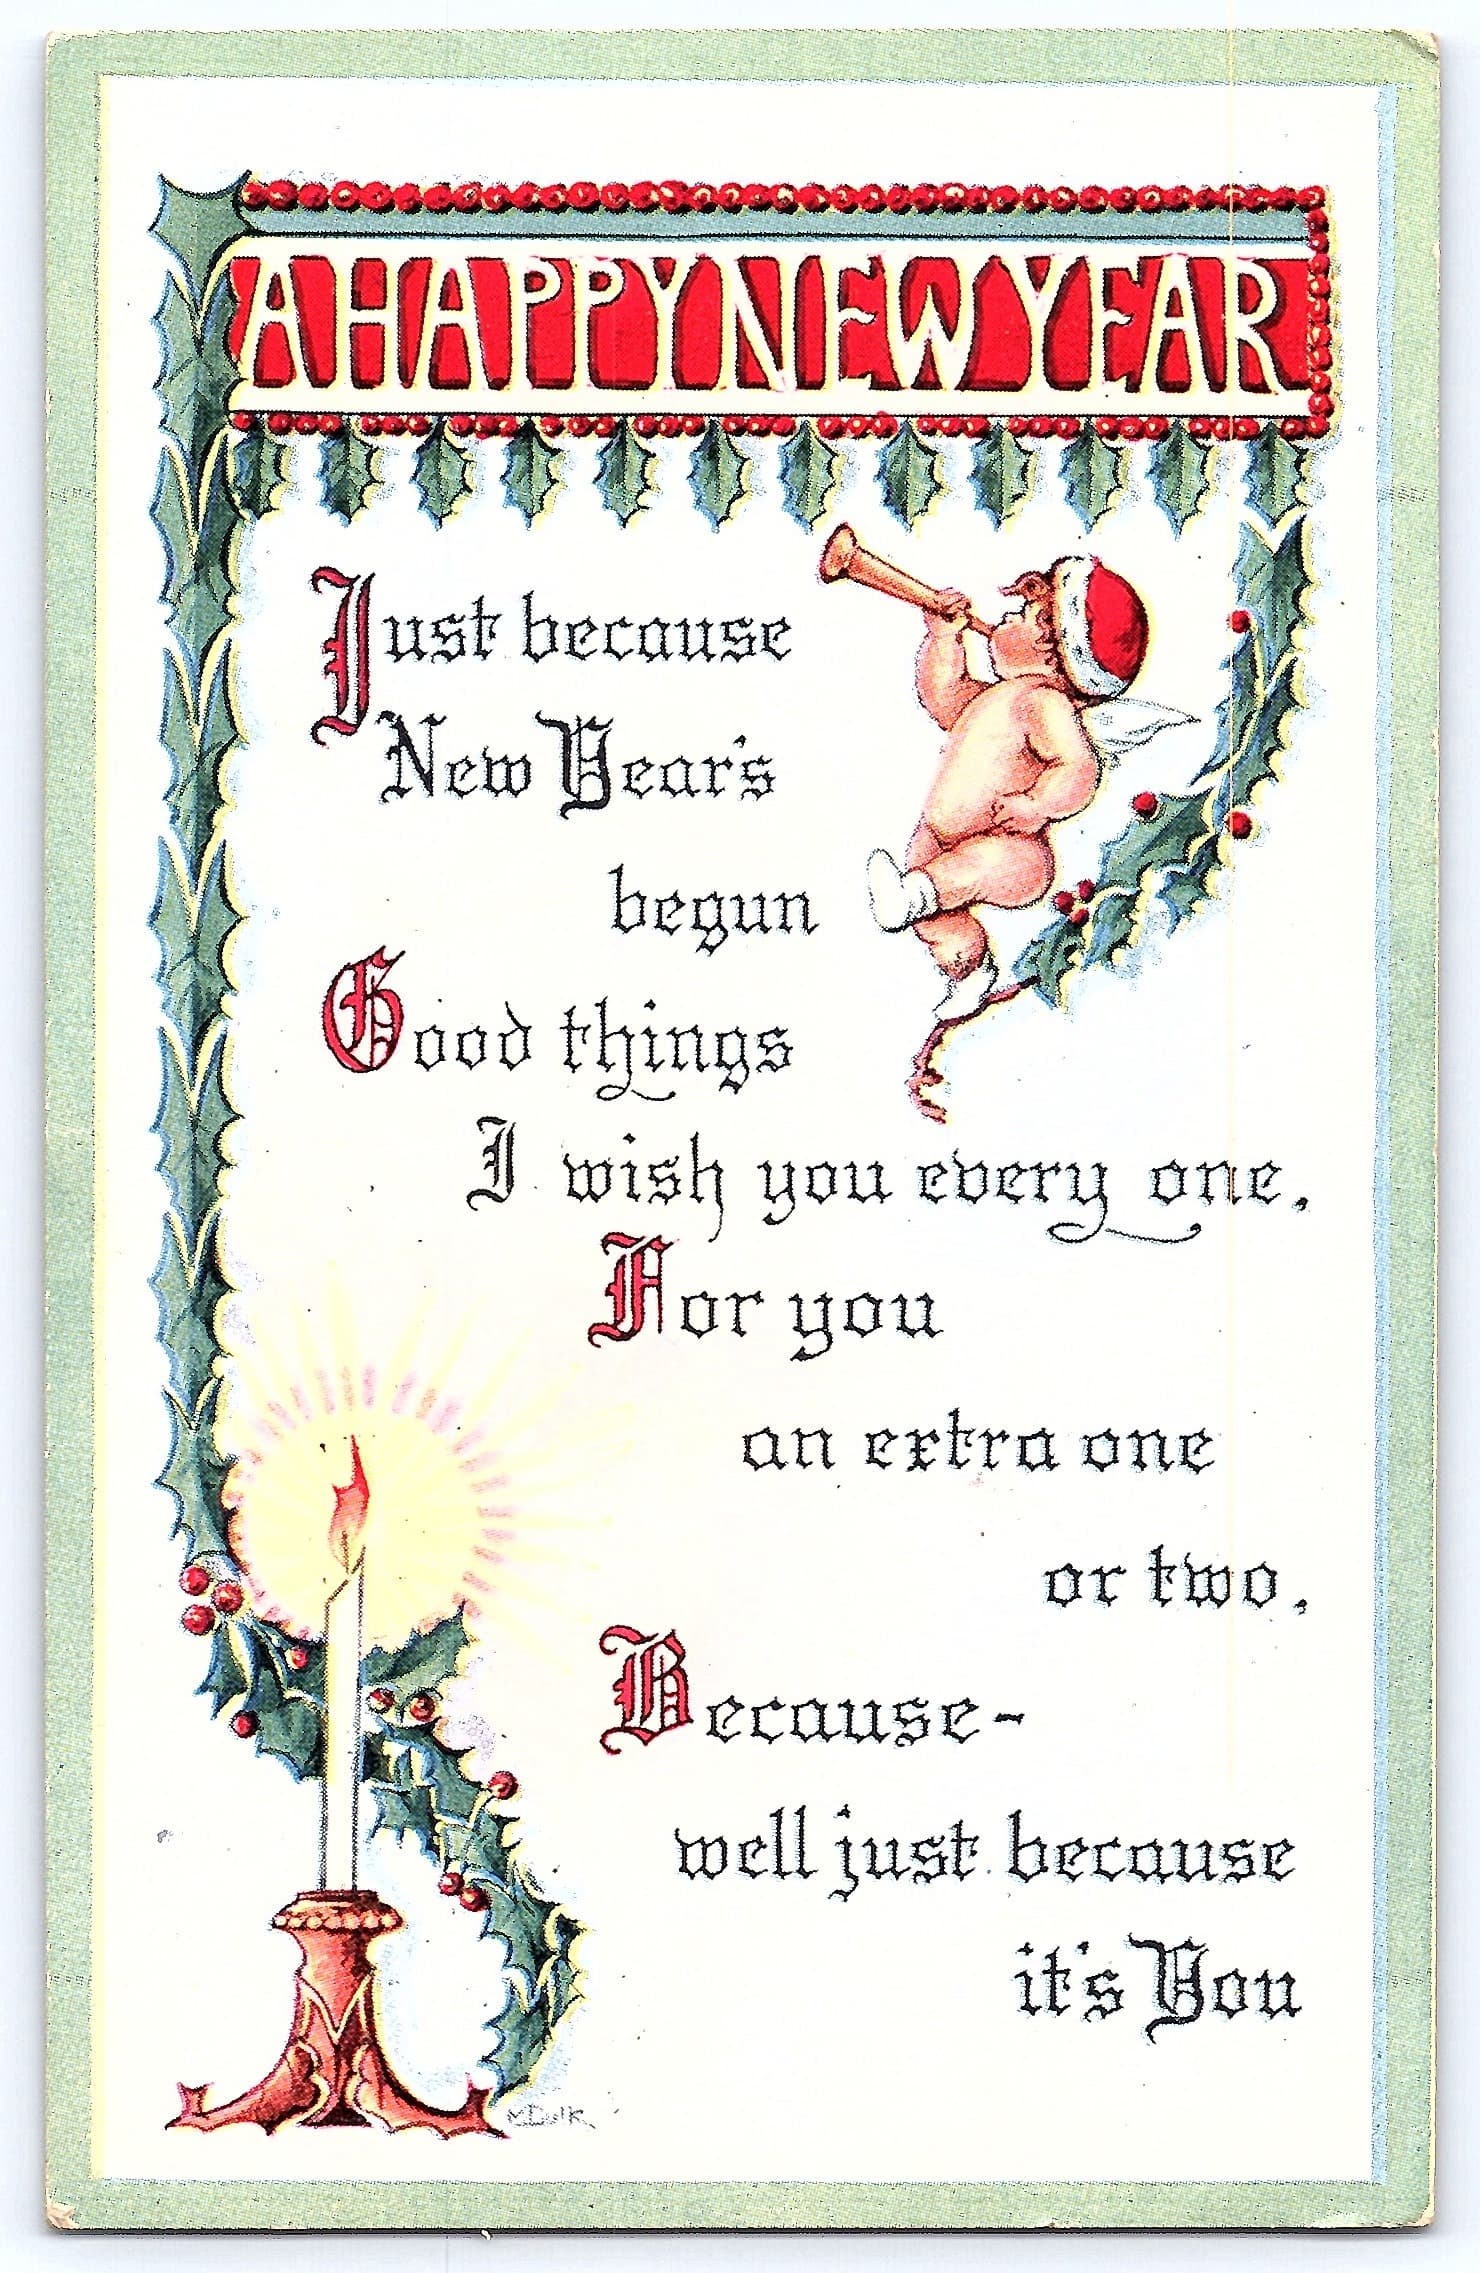 A HAPPY NEW YEAR
Just because
New Year's
begun
Good things
I wish you every one.
For you
an extra one
or two.
Because-
well just because
it's You
M Dulk